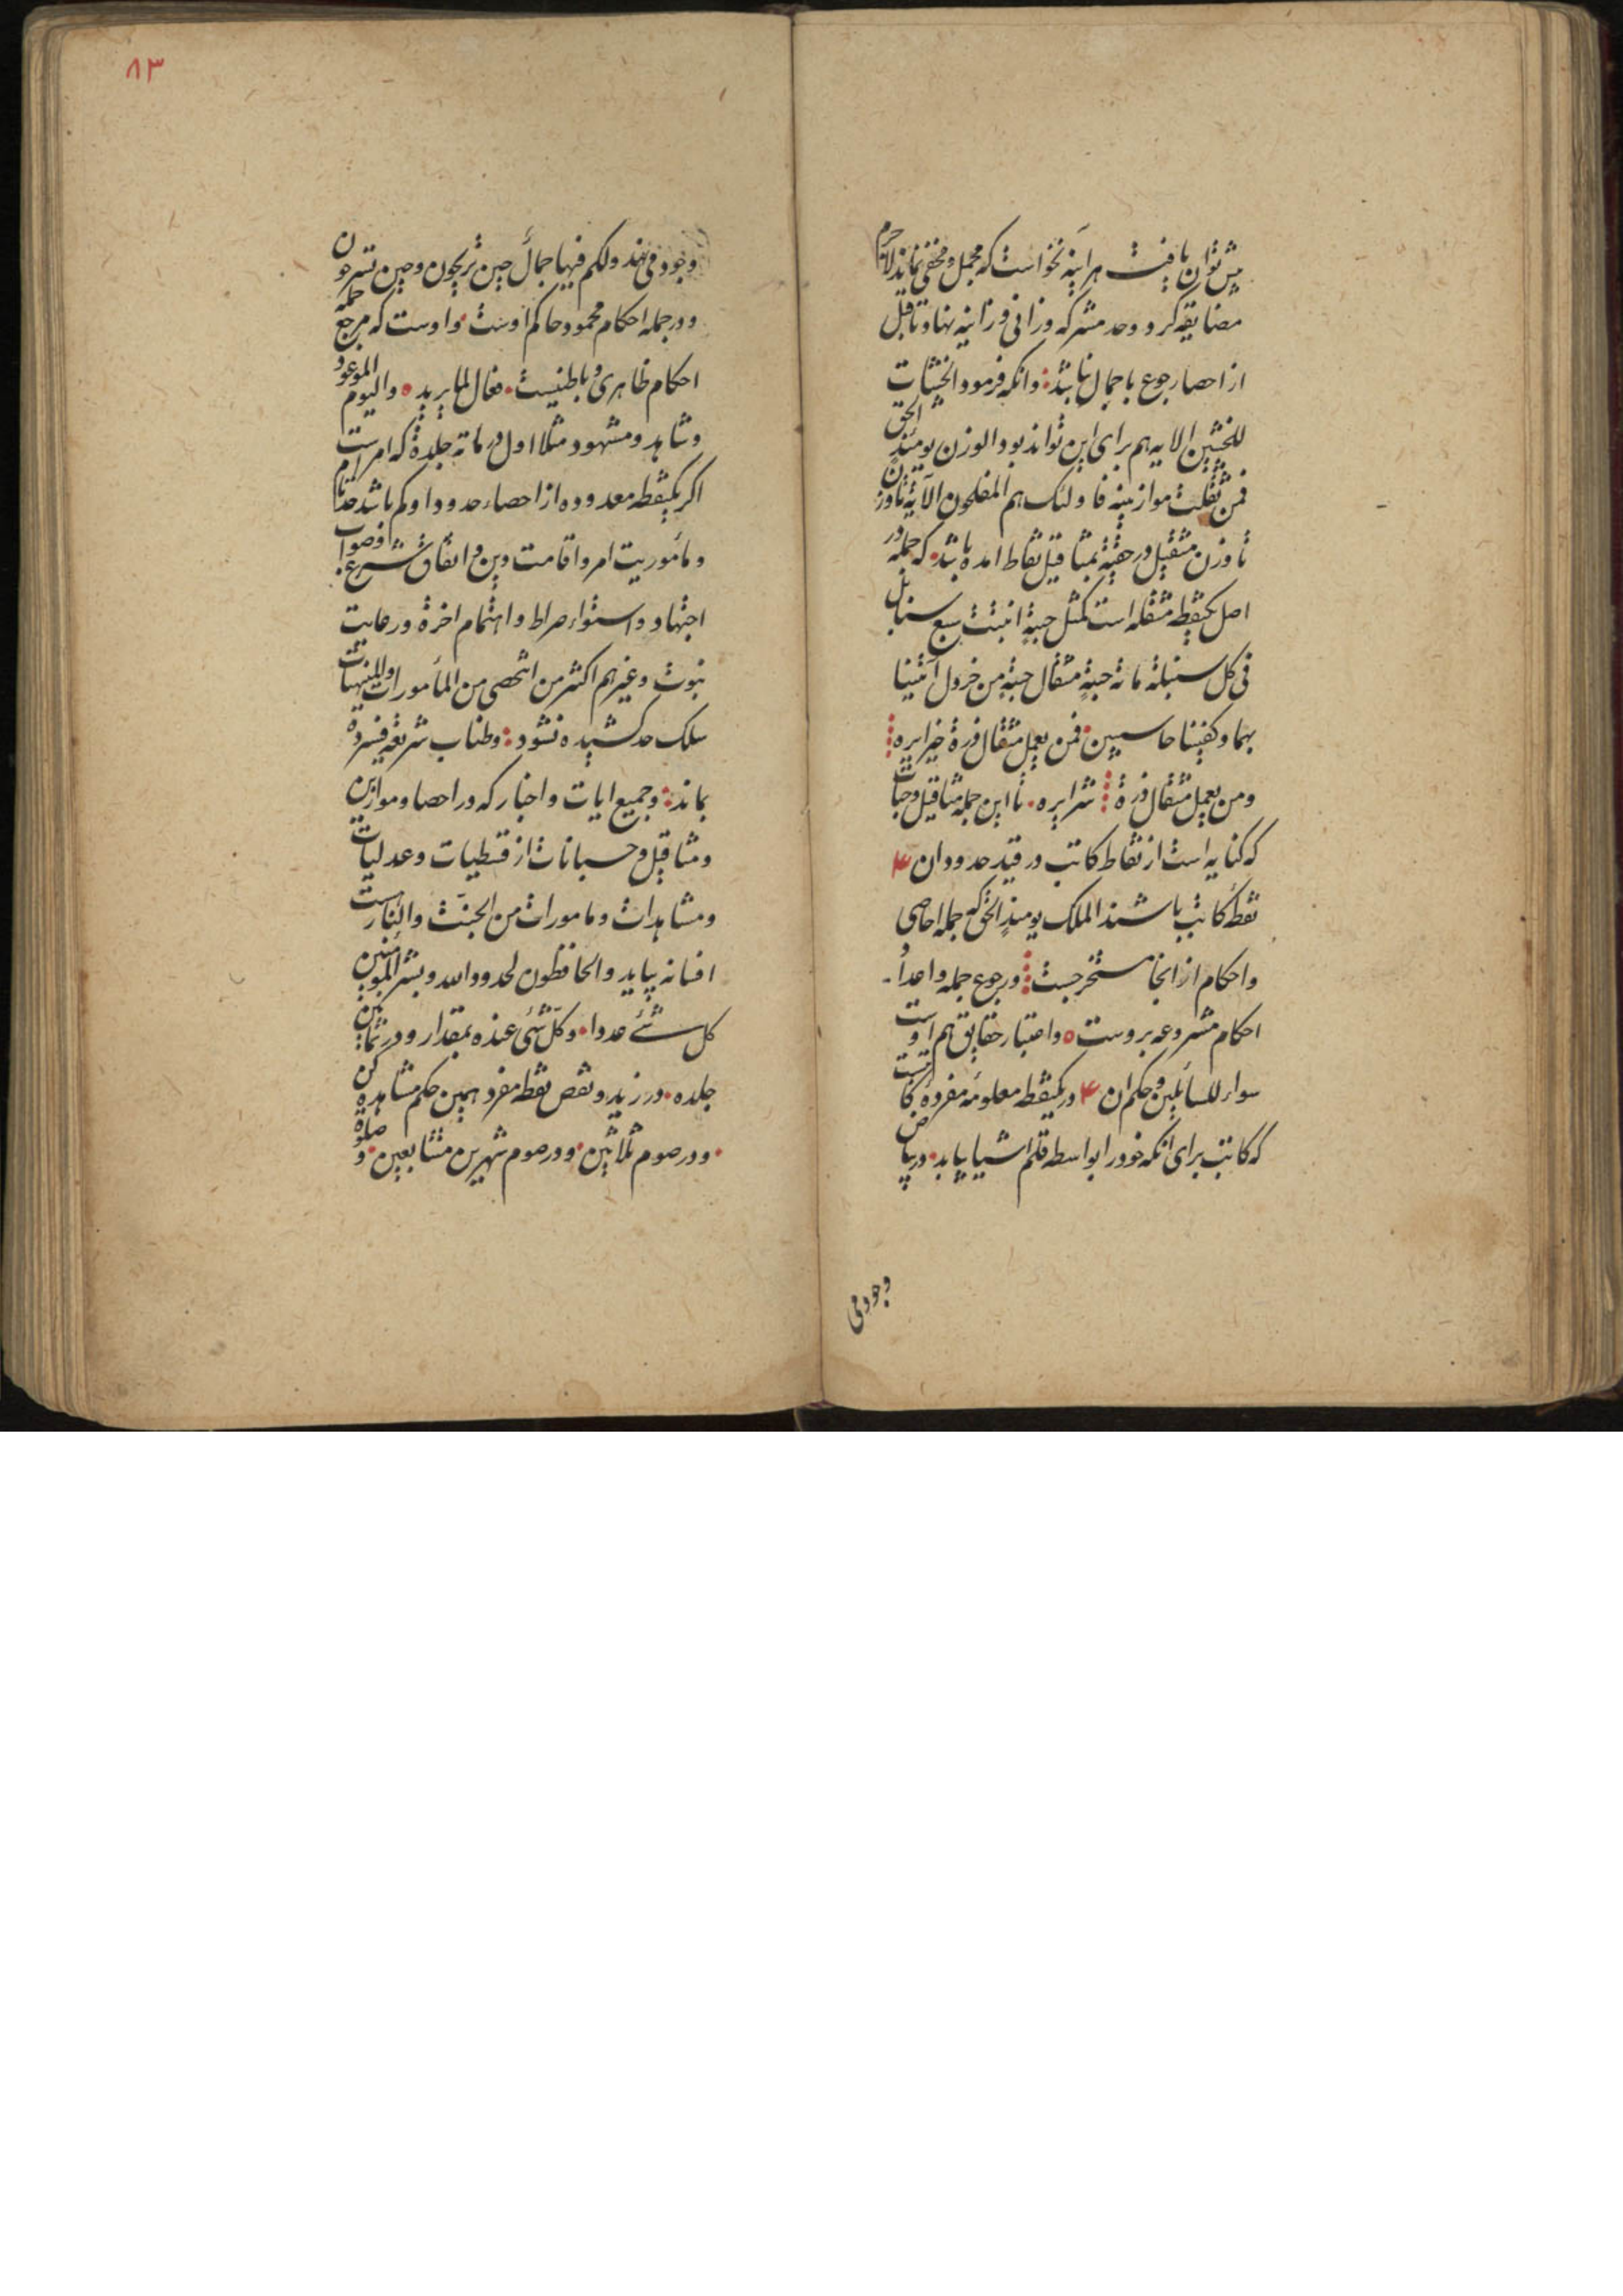 پس توان یافت هر اینه نخواست که مجمل و مخفی نماند لاجرم
مضایقه کرد و حد مشرکه و زانی و زانیه نهاد تا قبل
از احصا رجوع باجمال نباشد وانکه فرمود الخبیثات
للخبیثین الایه هم برای این تواند بود والوزن یومئذٍ الحق
فمن ثقلت موازینه فاولئک هم المفلحون الآیة تا وزن
تا وزن مثقیل در حقیه بمثاقیل نقاط امده باشد که جمله در
اصل یکنقطه مثقله است کمثل حبةٍ انبتت سبع سنابل
فی کل سنبلة مائة حبةٍ مثقال حبةٍ من خردل آتینا
بها وکفینا حاسبین فمن یعمل مثقال ذرة خیرا یره
ومن یعمل مثقال ذرة شرا یره تا این جمله مثاقیل و حبات
که کنایه است از نقاط کاتب در قید حدود ان ۴
نقطهٔ کاتب باشند الملک یومئذٍ الحق که جمله احاصی
واحکام از انجا مستخرجست و رجوع جمله واعداد
احکام مشروعه بروست واعتبار حقایق هم اوست
سواء للسائلین و حکم ان ۴ در یکنقطه معلومهٔ مفردهٔ کاتبست
که کاتب برای انکه خود را بواسطه قلم اشیا یابد در بیاض
وجود می
۸۳
وجود می نهد ولکم فیها جمال حین تریحون وحین تسرحون
و در جمله احکام محمود حاکم اوست و اوست که مرجع جمله
احکام ظاهری و باطنیست فعال لما یرید والیوم الموعود
وشاهد ومشهود مثلا اول در مائة جلدة که امرست
اگر یکنقطه معدوده از احصاء حدود او کم باشد حد تمام
و مأموریت امر واقامت دین و اتفاق شرع
اجتهاد واستواء صراط واهتمام اخرة و رعایت
نبوت وغیرهم اکثر من ان تحصی من المأمورات والمنهیات
سلک حد کشیده نشود وطناب شریعه فسرده
بماند وجمیع ایات واخبار که در احصا و موازین
ومثاقیل و حسبانات از قسطیات وعدلیات
ومشاهدات ومامورات من الجنت والنارست
افسانه بیاید والحافظون لحدود الله وبشر المومنین
کل شئ عددا وکل شئ عنده بمقدار و در ثمانین
جلده در زید و نقص نقطه مفرد همین حکم مشاهده کن
و در صوم ثلاثین و در صوم شهرین متتابعین و صلوة